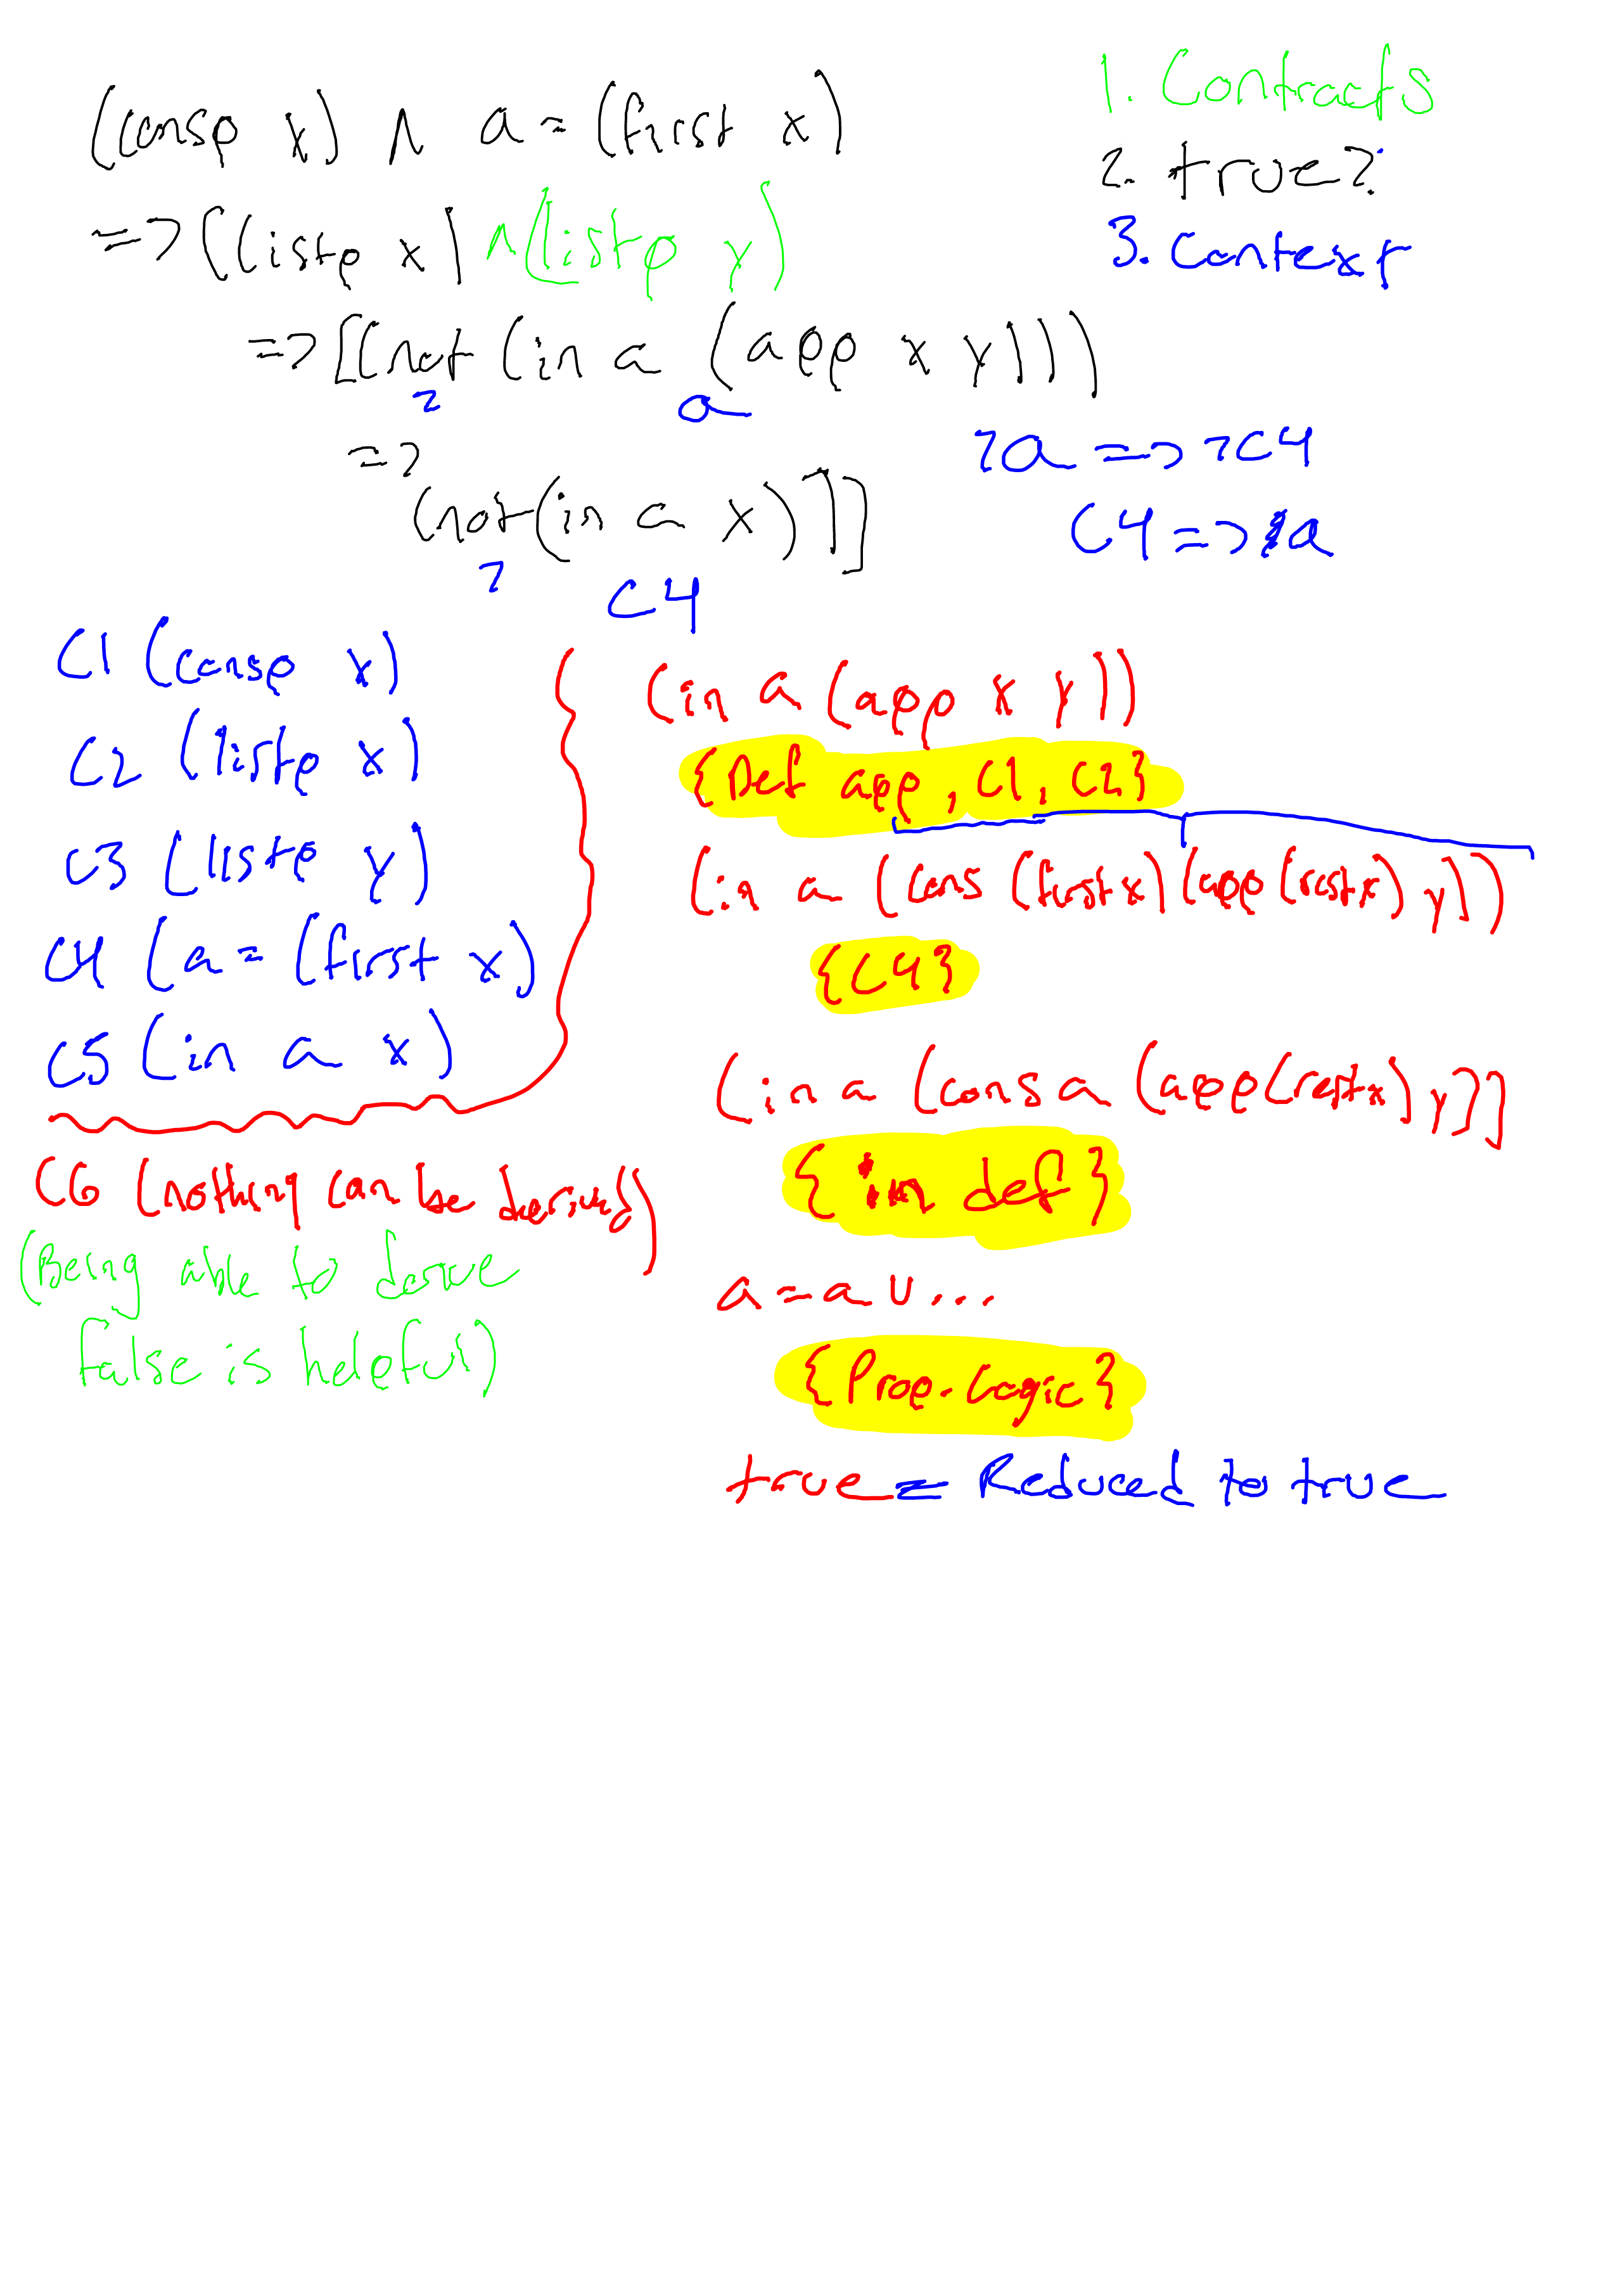 (consp x) ∧ a = (first x)
=> [(listp x) ∧ (listp y)
=> [(not (in a (app x y)))
¬ a
=>
(not (in a x)]]
¬ C4
1. Contracts
2. true?
3. Context
¬a => ¬C4
C4 => a
C1 (consp x)
C2 (listp x)
C3 (listp y)
C4 (a = (first x)
C5 (in a x)
C6 (nothing can be derived)
(Being able to derive
false is helpful)
(in a (app x y))
{Def app, C1, C2}
(in a (cons (first x) (app (rest x) y)))
{C4}
(in a (cons a (app (rest x) y)]]
{in def}
a = a ∪ ...
{Prop. Logic}
true = Reduced to true